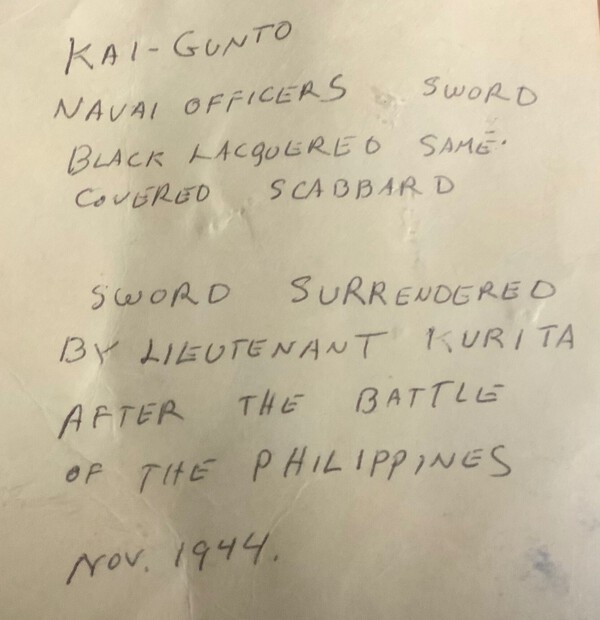 KAI-GUNTO
NAVAL OFFICERS SWORD
BLACK LACQUERED SAMÉ-
COVERED SCABBARD
SWORD SURRENDERED
BY LIEUTENANT KURITA
AFTER THE BATTLE
OF THE PHILIPPINES
NOV. 1944.